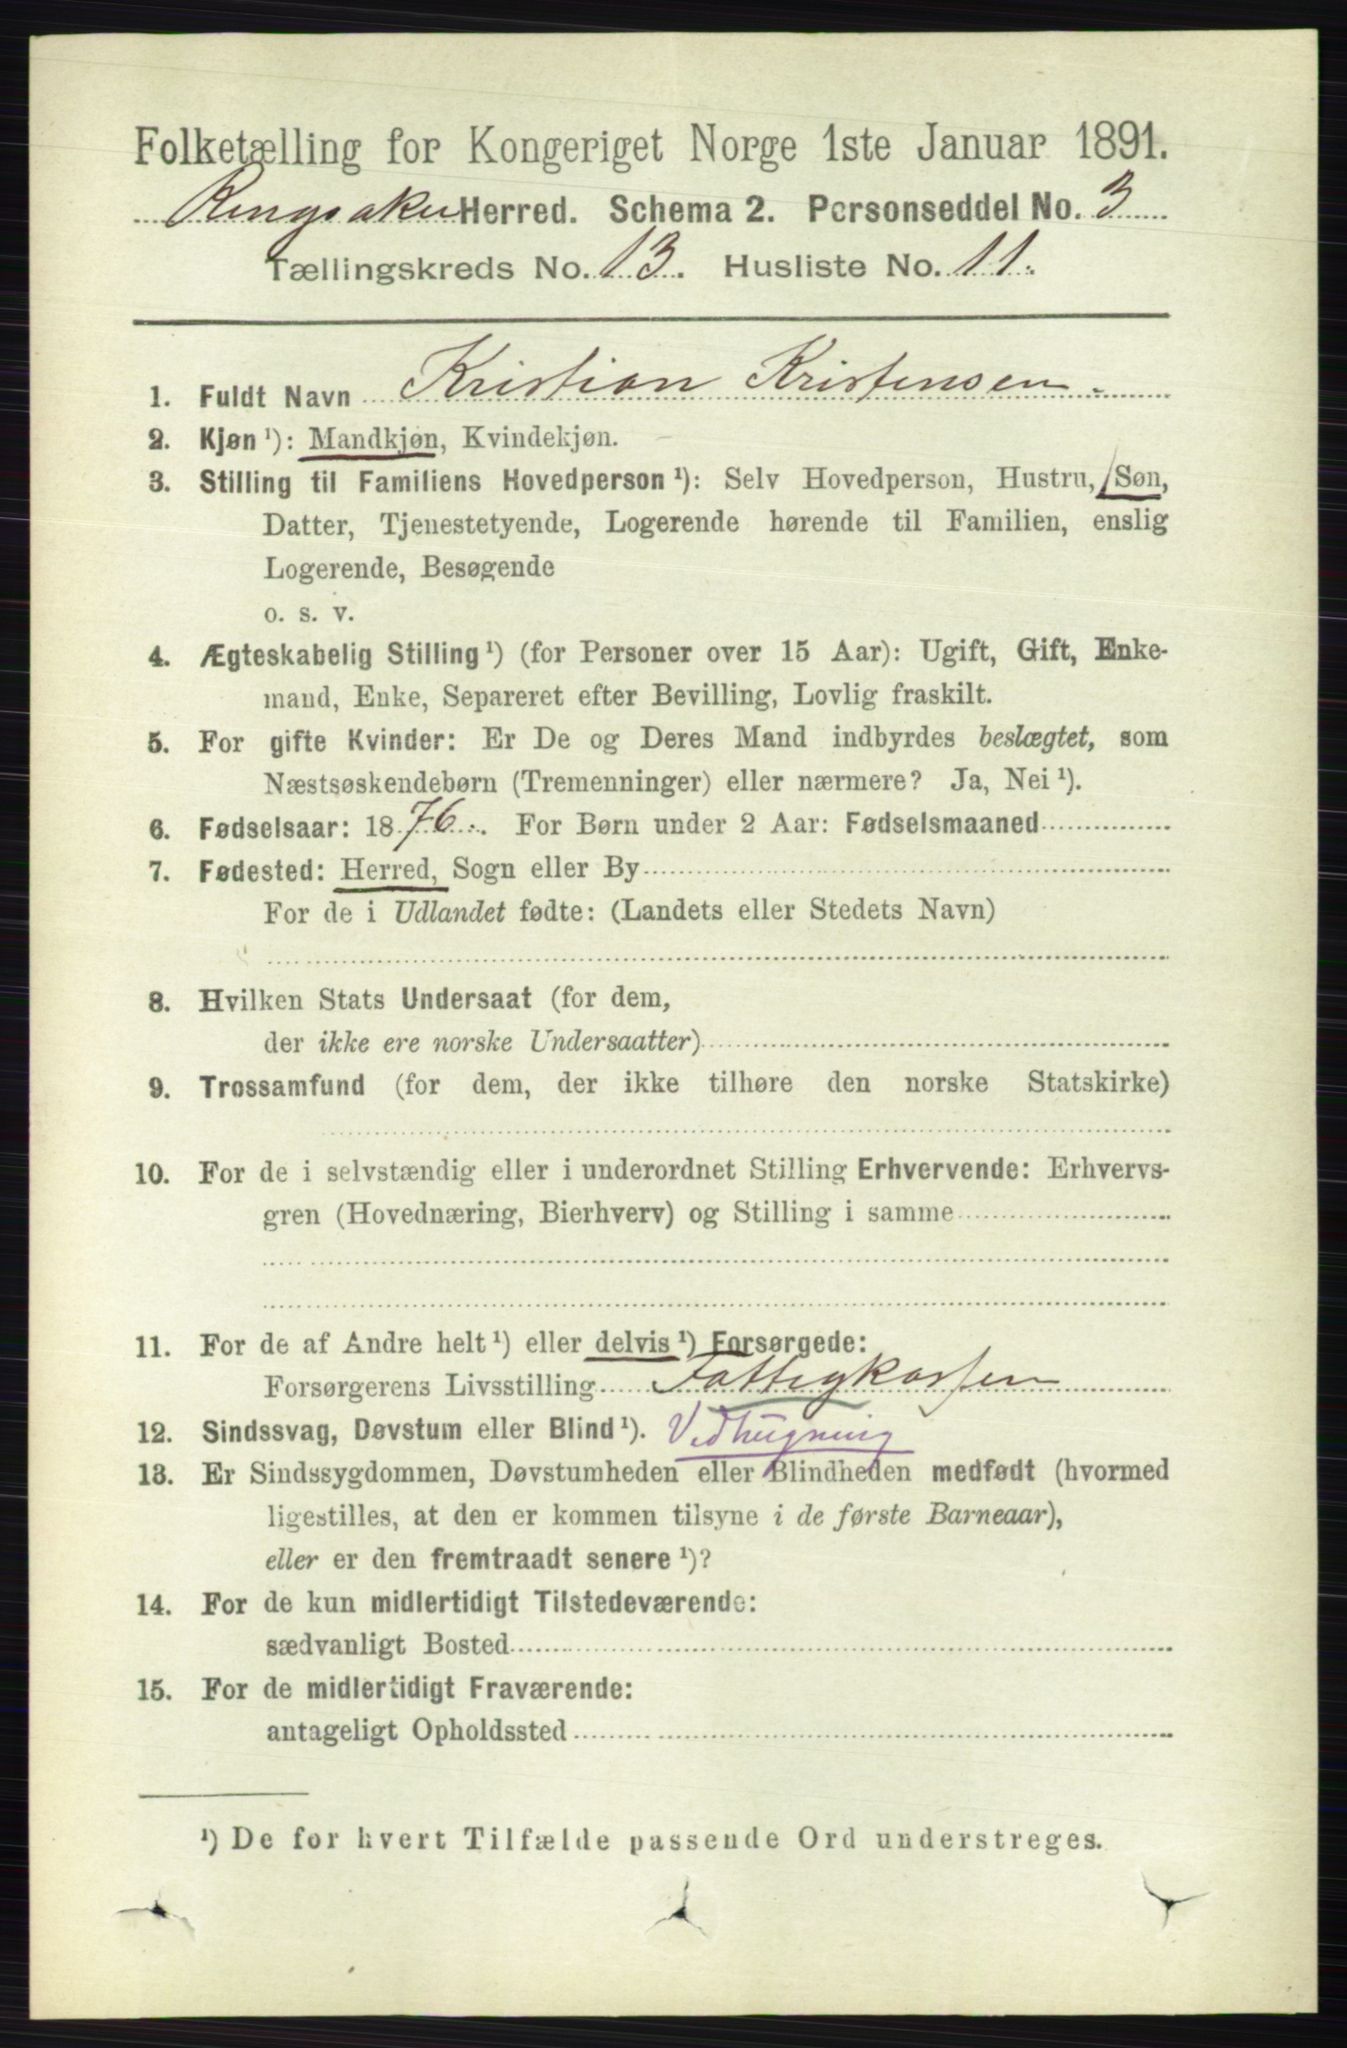 Folketælling for Kongeriget Norge 1ste Januar 1891.
Ringsaker Herred. Schema 2. Personseddel No. 3
Tællingskreds No. 13. Husliste No. 11.
1. Fuldt Navn Kristian Kristensen.
2. Kjøn ¹): Mandkjøn, Kvindekjøn.
3. Stilling til Familiens Hovedperson ¹): Selv Hovedperson, Hustru, Søn,
Datter, Tjenestetyende, Logerende hørende til Familien, enslig
Logerende, Besøgende
o. s. v.
4. Ægteskabelig Stilling ¹) (for Personer over 15 Aar): Ugift, Gift, Enke-
mand, Enke, Separeret efter Bevilling, Lovlig fraskilt.
5. For gifte Kvinder: Er De og Deres Mand indbyrdes beslægtet, som
Næstsøskendebørn (Tremenninger) eller nærmere? Ja, Nei ¹).
6. Fødselsaar: 1876. For Børn under 2 Aar: Fødselsmaaned
7. Fødested: Herred, Sogn eller By
For de i Udlandet fødte: (Landets eller Stedets Navn)
8. Hvilken Stats Undersaat (for dem,
der ikke ere norske Undersaatter)
9. Trossamfund (for dem, der ikke tilhøre den norske Statskirke)
10. For de i selvstændig eller i underordnet Stilling Erhvervende: Erhvervs-
gren (Hovednæring, Bierhverv) og Stilling i samme
11. For de af Andre helt ¹) eller delvis ¹) Forsørgede:
Forsørgerens Livsstilling Fattigkassen
12. Sindssvag, Døvstum eller Blind ¹). Vedhugning
13. Er Sindssygdommen, Døvstumheden eller Blindheden medfødt (hvormed
ligestilles, at den er kommen tilsyne i de første Barneaar),
eller er den fremtraadt senere ¹)?
14. For de kun midlertidigt Tilstedeværende:
sædvanligt Bosted
15. For de midlertidigt Fraværende:
antageligt Opholdssted
¹) De for hvert Tilfælde passende Ord understreges.